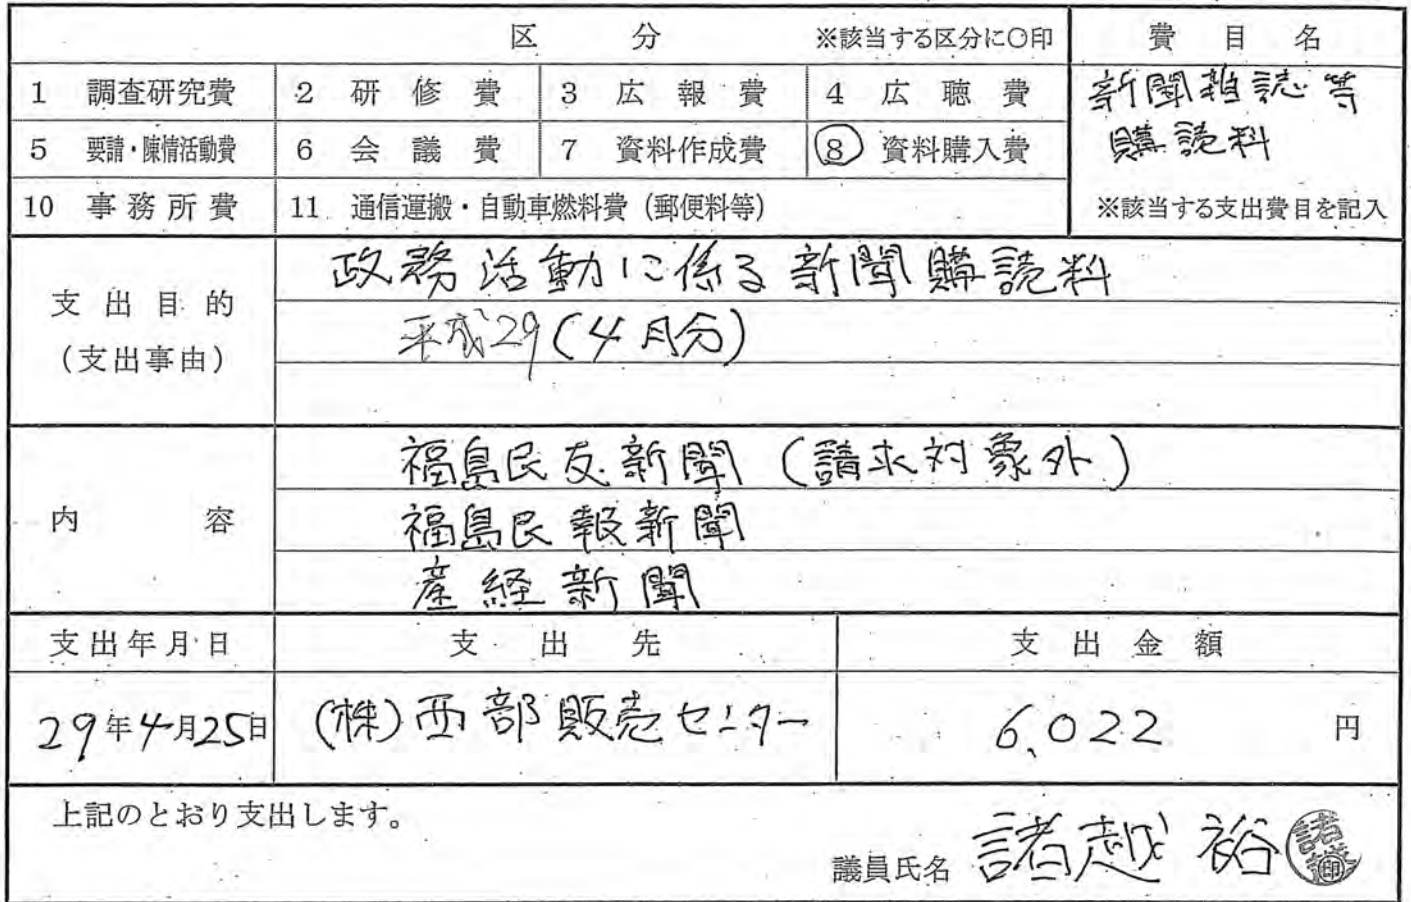 区 分 ※該当する区分に○印 費 目 名
1 調査研究費 2 研 修 費 3 広 報 費 4 広 聴 費 新聞雑誌等
5 要請・陳情活動費 6 会 議 費 7 資料作成費 ⑧ 資料購入費 購読料
10 事務所費 11 通信運搬・自動車燃料費（郵便料等） ※該当する支出費目を記入
支 出 目 的
（支出事由）
政務活動に係る新聞購読料
平成29（4月分）
内 容
福島民友新聞（請求対象外）
福島民報新聞
産経新聞
支出年月日 支 出 先 支 出 金 額
29年4月25日 (株)西部販売センター 6,022 円
上記のとおり支出します。
議員氏名 諸越 裕 印